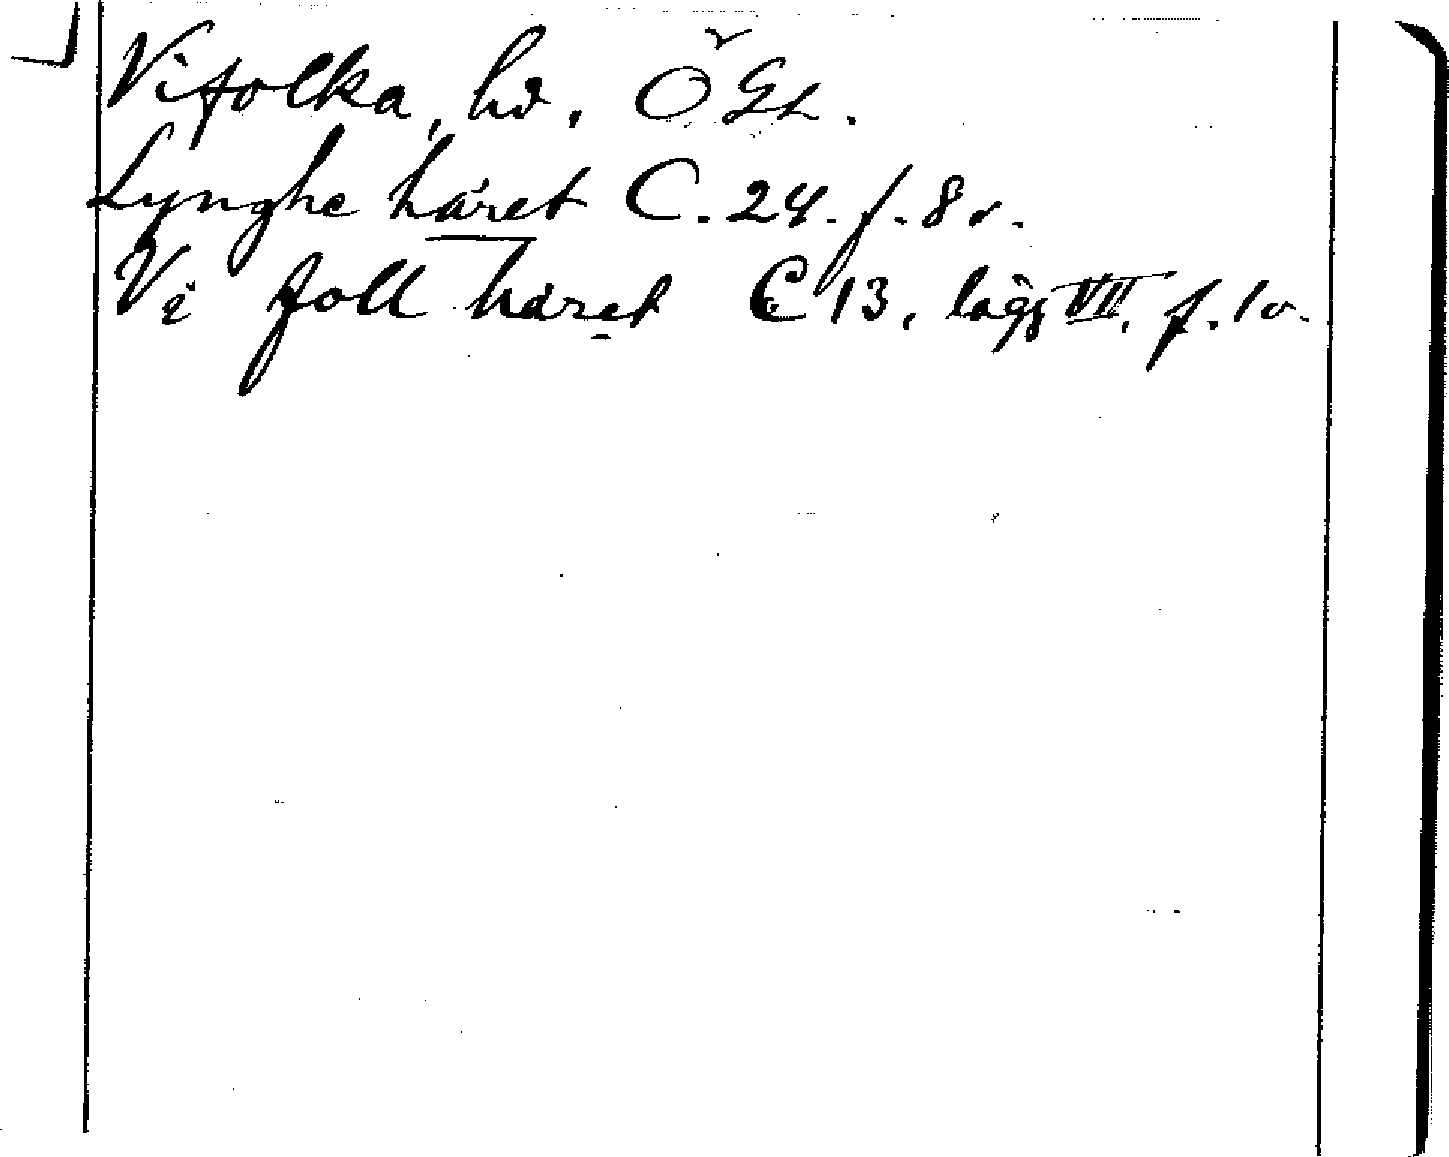 Vifolka, hd. ÖGL.
Lynghe häret C. 24. f. 8 v.
Vi foll häret C 13, lägg VII, f. 1 v.